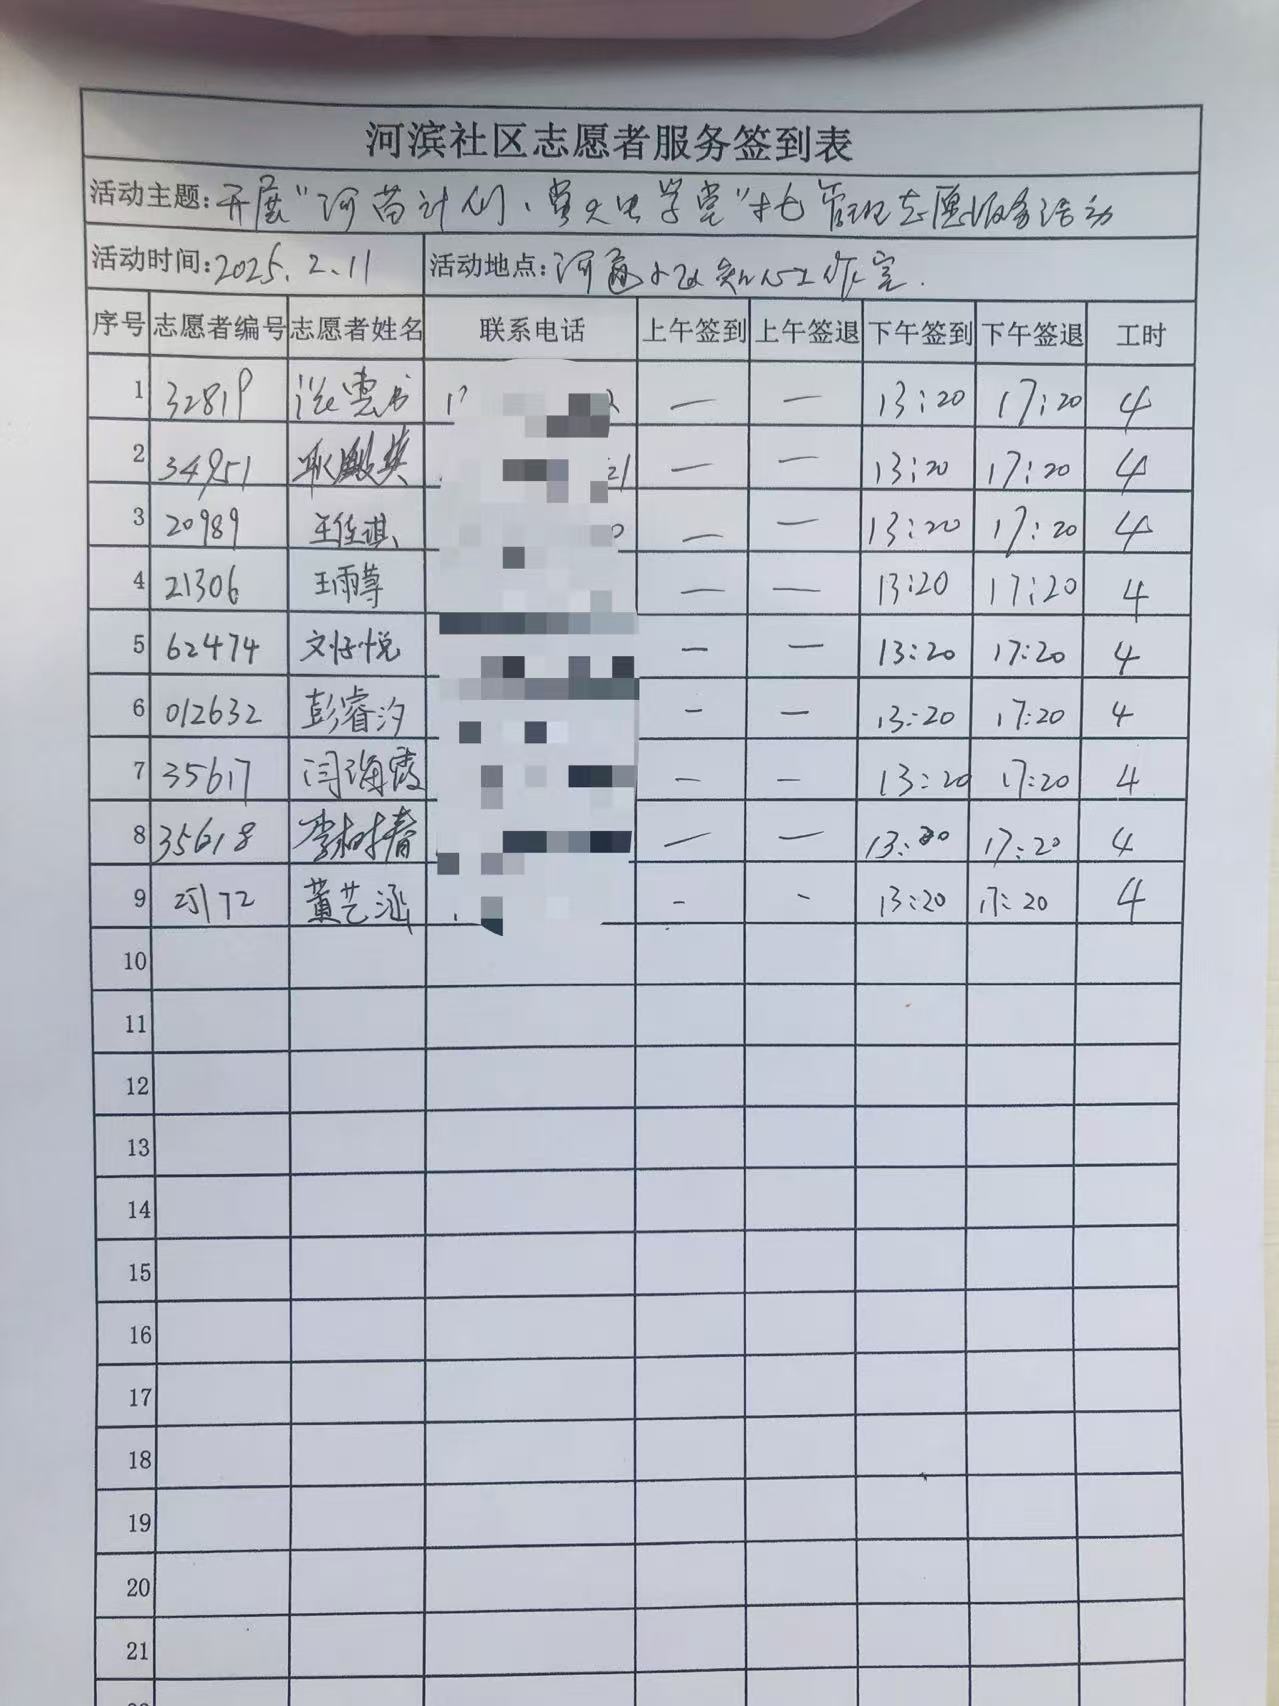 河滨社区志愿者服务签到表
活动主题:开展"河苗计划、萤火虫学堂"托管理志愿服务活动
活动时间:2025.2.11 活动地点:河 小 知心工作室.
序号 志愿者编号 志愿者姓名 联系电话 上午签到 上午签退 下午签到 下午签退 工时
1 32819 — — 13:20 17:20 4
2 34951 耿 英 — — 13:20 17:20 4
3 20989 王佳琪 — — 13:20 17:20 4
4 21306 王雨荨 — — 13:20 17:20 4
5 62474 文 悦 — — 13:20 17:20 4
6 012632 彭睿汐 — — 13:20 17:20 4
7 35617 闫海霞 — — 13:20 17:20 4
8 35618 李树春 — — 13:20 17:20 4
9 25172 董艺涵 - - 13:20 17:20 4
10
11
12
13
14
15
16
17
18
19
20
21